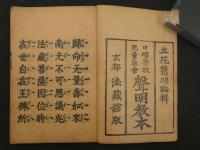 立花慧明編輯
日曜學校
兒童敎會
聲明敎本
京都 法藏館版
歸命无量壽如來
南无不可思議光
法藏菩薩因位時
在世自在王佛所